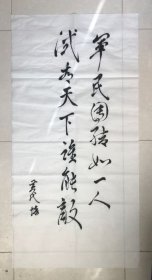 军民团结如一人
试看天下谁能敌